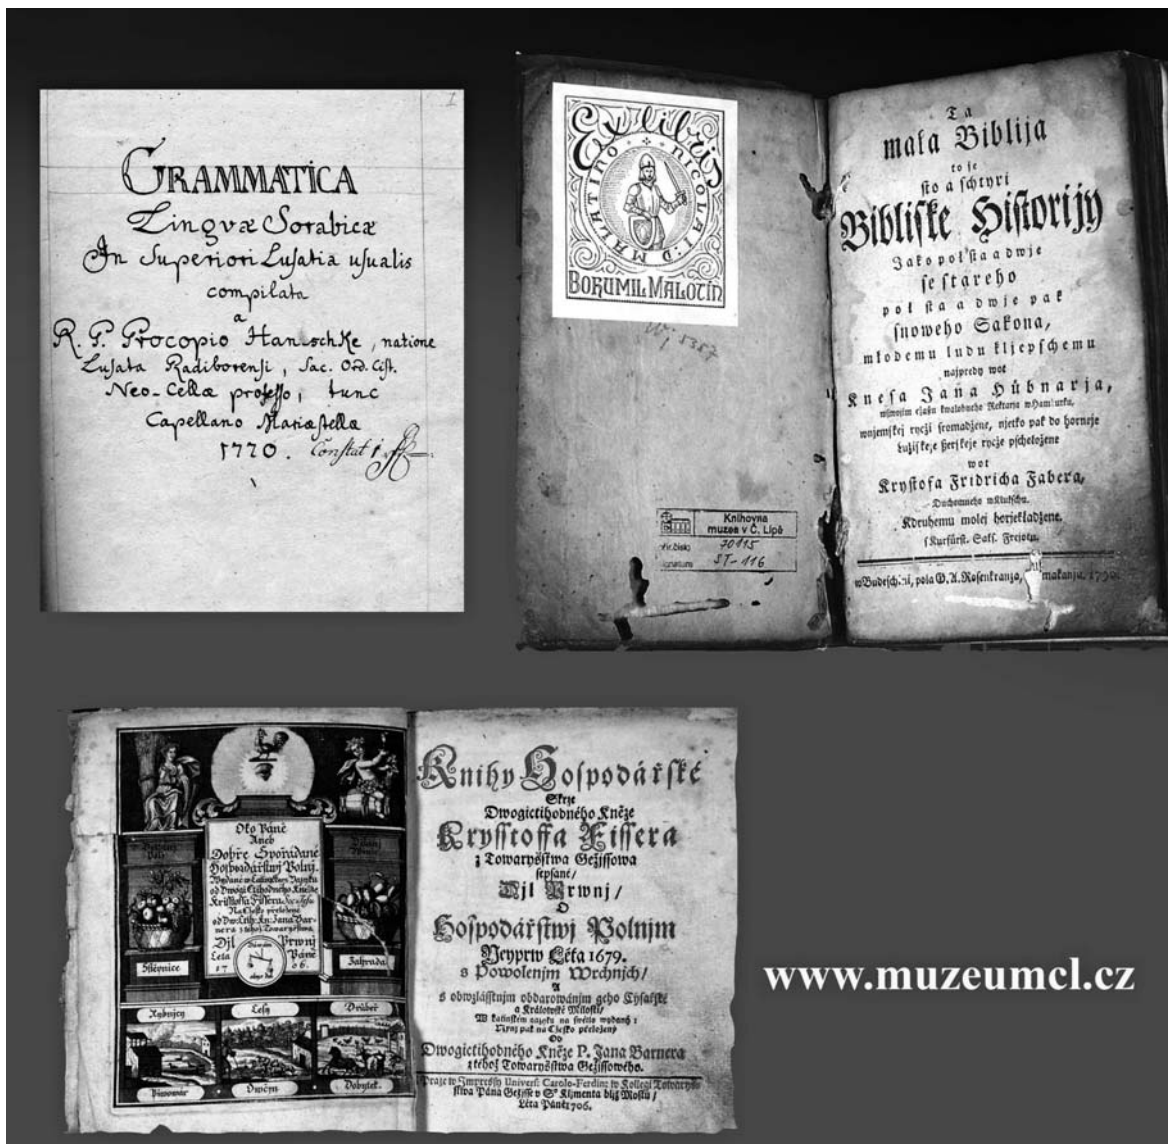 1
GRAMMATICA
Lingvæ Sorabicæ
In Superiori Lusatia usualis
compilata
a
R. P. Procopio Hanschke, natione
Lusata Radiborensi, Sac. Ord. Cist.
Neo-Cellæ professo, tunc
Capellano Mariæstellæ
1770. Constat 1
Ex libris
MARTINO NICOLAI D
BOHUMIL MALOTÍN
5387
Knihovna
muzea v Č. Lípě
70115
ST-116
Ta
mała Biblija
to je
sto a schtyri
Bibliske Historijy
Jako poł sta a dwje
se stareho
poł sta a dwje pak
snoweho Sakona,
młodemu ludu kljepschemu
najpredy wot
Knesa Jana Hübnarja,
wnjemskej ryczi sromadzene, njetko pak do horneje
Łužiskeje Serskeje rycze pschełožene
wot
Krystofa Fridricha Fabera,
Duchomneho wKlukschu.
Kdruhemu molej horjekladzene.
s Kurfürst. Saks. Frejotu.
wBudeschini, pola G. A. Rosenkranza, 1790.
Oko Páně
Aneb
Dobře Spořádané
Hospodářstwj Polnj.
Wydané w Latinském Jazyku
od Dwogi Ctihodného Kněze
Krisstoffa Fissera
Na Cžesko přeložené
od Dw: Ctih: Kn: Jana Bar-
nera z téhož Towaryšstwa
Djl Prwnj
Léta Páně
17 06.
Sstěpnice
Zahrada
Rybnjcy
Lesy
Drůbež
Piwowár
Owčjn
Dobytek.
Knihy Hospodářské
Skrze
Dwogictihodného Kněze
Krysstoffa Fissera
z Towaryšstwa Gežissowa
sepsané/
Djl Prwnj/
O
Hospodářstwj Polnjm
Neyprw Léta 1679.
s Powolenjm Wrchnjch/
A
s obwzlásstnjm obdarowánjm geho Cysařské
a Králowské Milosti/
W Latinském gazyku na swětlo wydaný:
Nynj pak na Cžesko přeložený
Od
Dwogictihodného Kněze P. Jana Barnera
z téhož Towaryšstwa Gežissowého.
Praze w Impressy Univers: Carolo-Ferdin: w Kollegi Towaryš-
stwa Pána Gežisse v S° Klimenta bljž Mostu/
Léta Páně 1706.
www.muzeumcl.cz